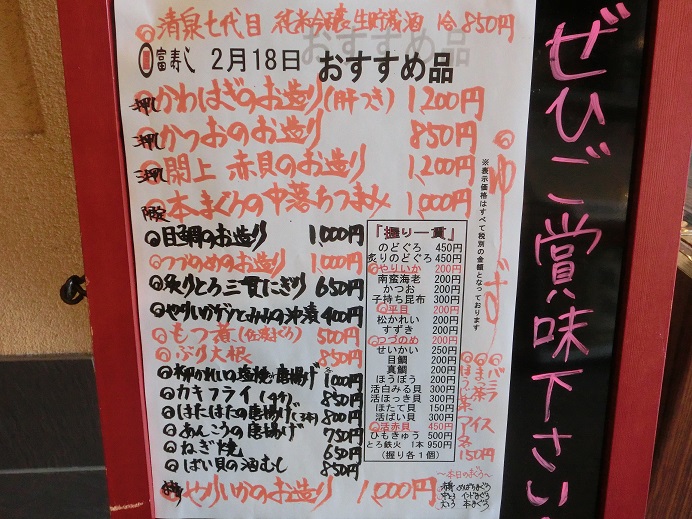 清泉七代目 純米吟醸生貯蔵酒 冷850円
富寿し 2月18日 おすすめ品
押し かわはぎのお造り(肝つき) 1,200円
押し かつおのお造り 850円
押し 閖上 赤貝のお造り 1,200円
限定 本まぐろの中落ちつまみ 1,000円
目鯛のお造り 1,000円
つづのめのお造り 1,000円
炙りとろ三貫にぎり 650円
やりいかゲソとみみの沖漬 400円
もつ煮(佐渡まぐろ) 500円
ぶり大根 850円
柳かれいの塩焼き 唐揚げ 各1,000円
カキフライ(4ケ) 850円
はたはたの唐揚げ(3本) 800円
あんこうの唐揚げ 750円
ねぎ焼 650円
ばい貝の酒むし 850円
やりいかのお造り 1,000円
「握り一貫」
のどぐろ 450円
炙りのどぐろ 450円
やりいか 200円
南蛮海老 200円
かつお 200円
子持ち昆布 300円
平目 200円
松かれい 200円
すずき 200円
つづのめ 200円
せいかい 250円
目鯛 200円
真鯛 200円
ほうぼう 200円
活白みる貝 300円
活ほっき貝 300円
ほたて貝 150円
活ばい貝 300円
活赤貝 450円
ひもきゅう 500円
とろ鉄火 1本 950円
(握り各1個)
※表示価格はすべて税別の金額となっております
ゆず
バニラ
まっ茶
ほうじ茶
アイス
各150円
~本日のまぐろ~
ぜひご賞味下さい